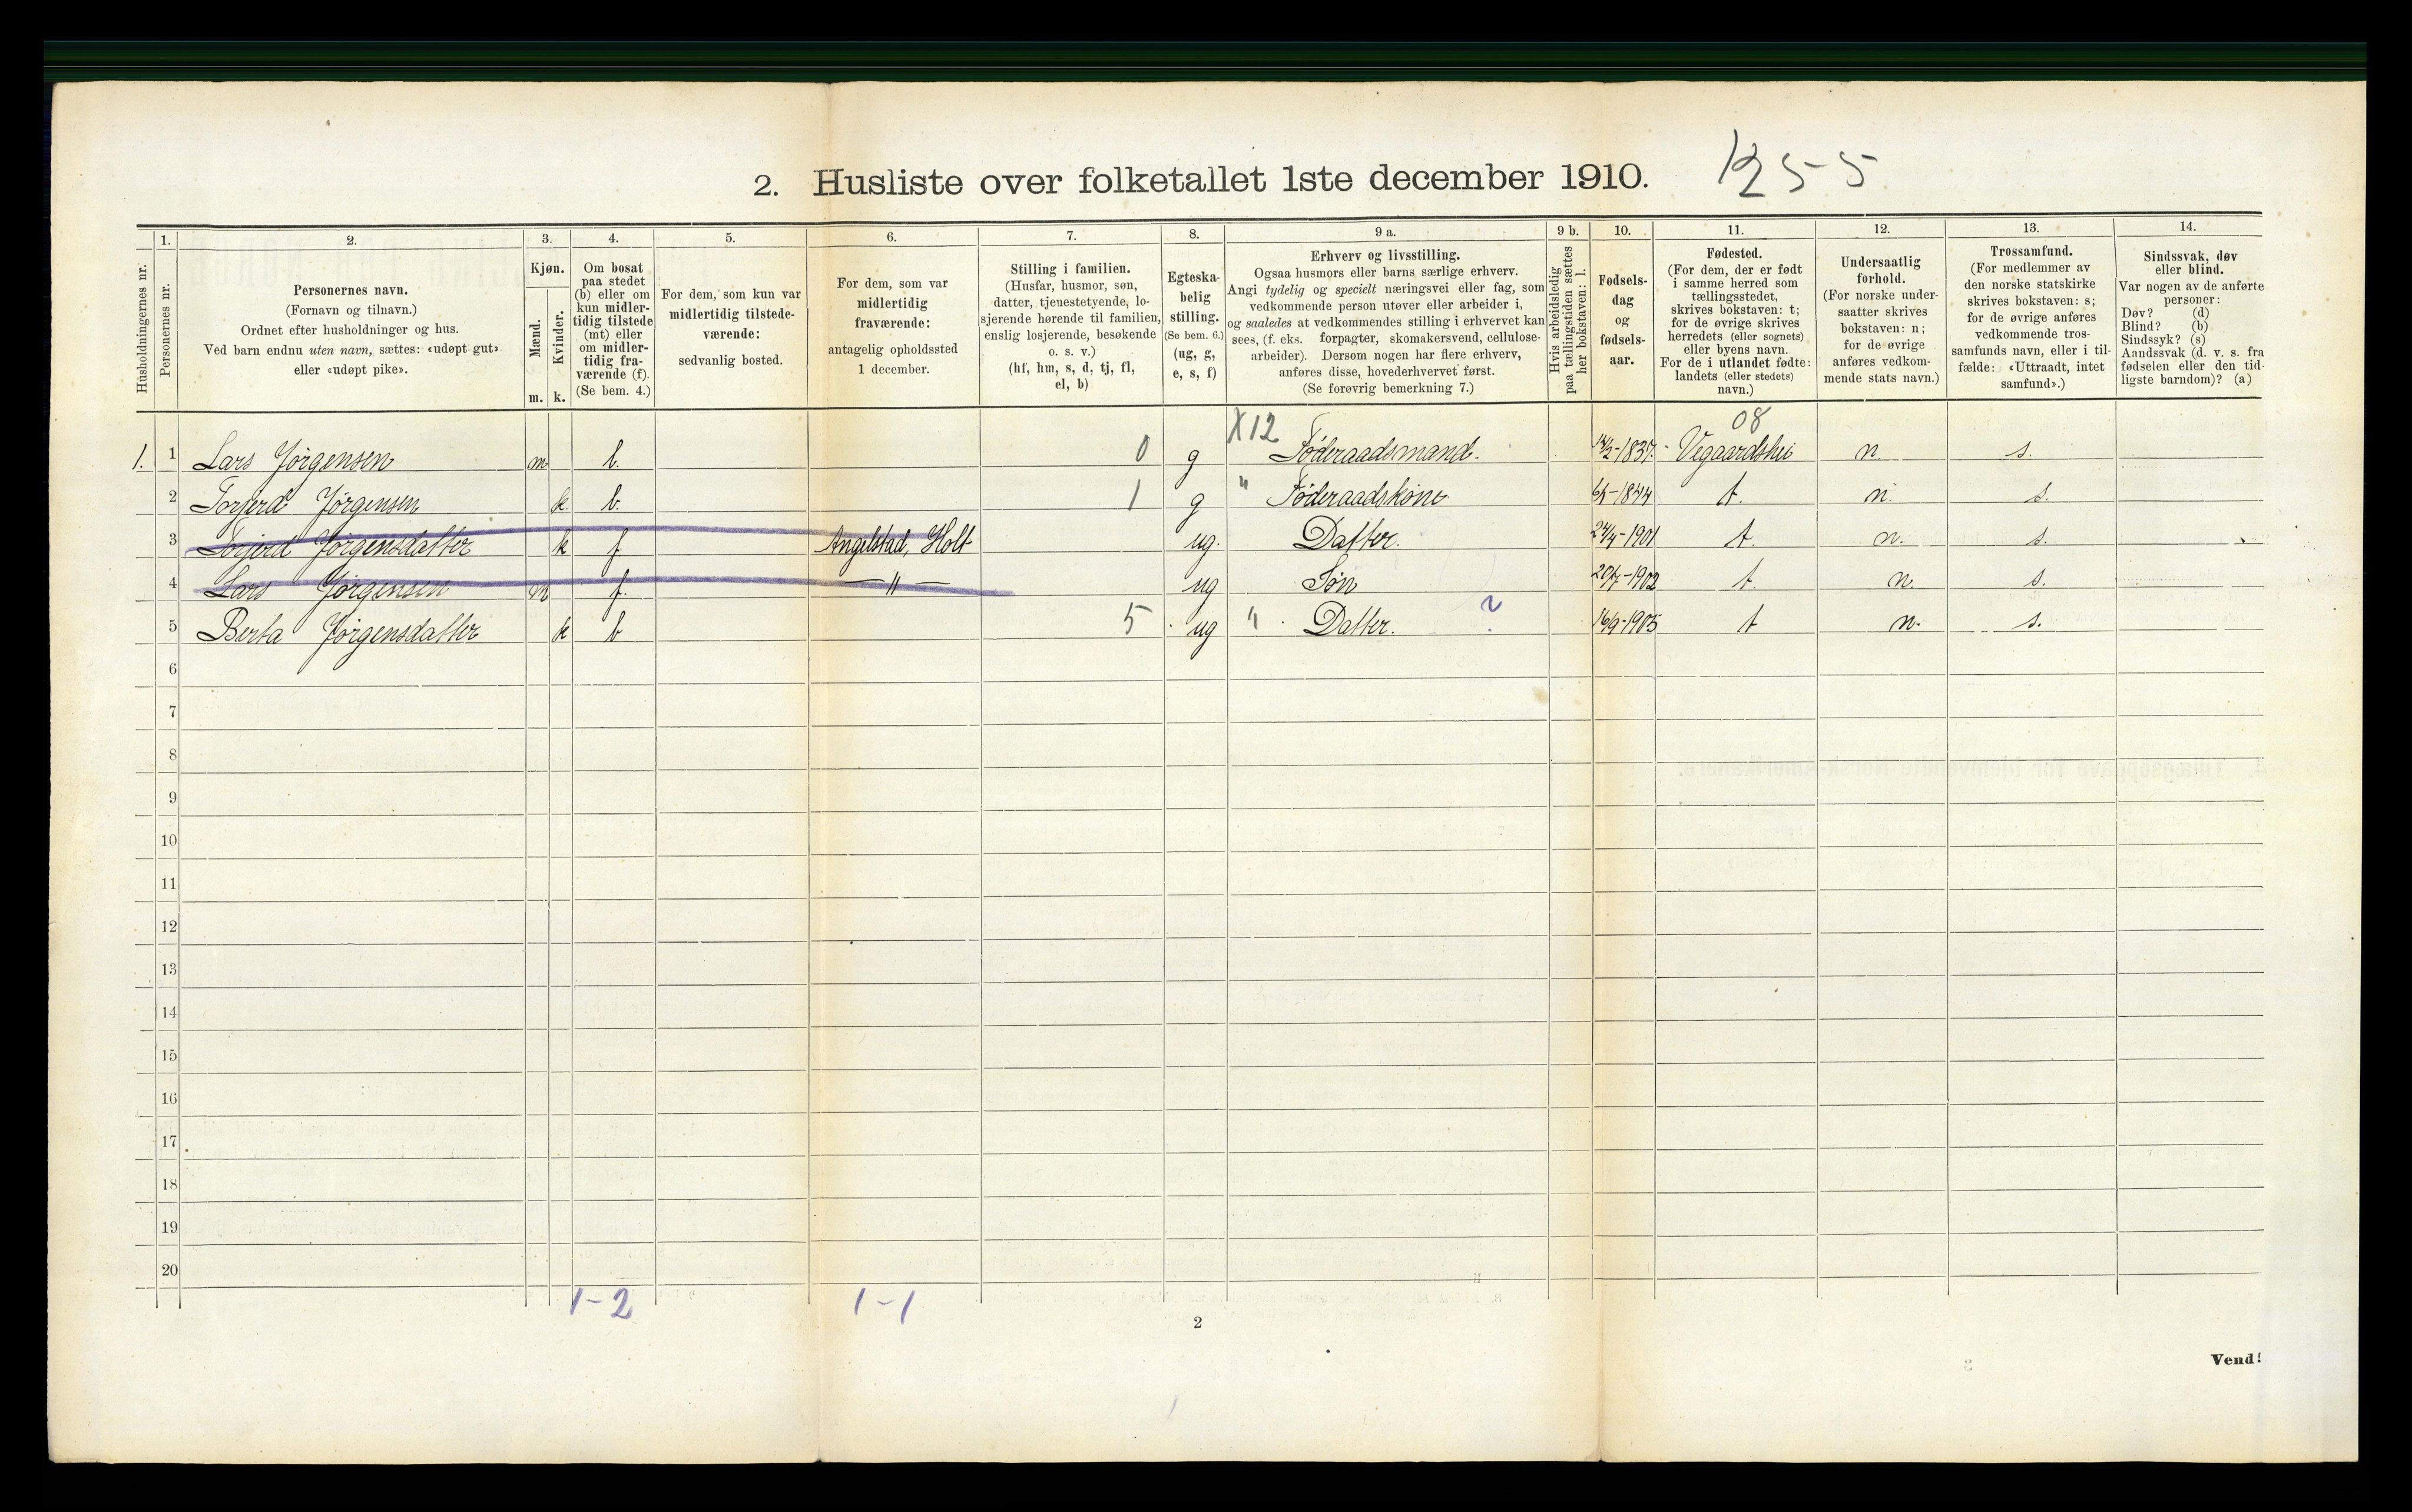 2. Husliste over folketallet 1ste december 1910. 1255
Husholdningernes nr.
1.
Personernes nr.
2.
Personernes navn.
(Fornavn og tilnavn.)
Ordnet efter husholdninger og hus.
Ved barn endnu uten navn, sættes: «udøpt gut»
eller «udøpt pike».
3.
Kjøn.
Mænd.
Kvinder.
m. k.
4.
Om bosat
paa stedet
(b) eller om
kun midler-
tidig tilstede
(mt) eller
om midler-
tidig fra-
værende (f).
(Se bem. 4.)
5.
For dem, som kun var
midlertidig tilstede-
værende:
sedvanlig bosted.
6.
For dem, som var
midlertidig
fraværende:
antagelig opholdssted
1 december.
7.
Stilling i familien.
(Husfar, husmor, søn,
datter, tjenestetyende, lo-
sjerende hørende til familien,
enslig losjerende, besøkende
o. s. v.)
(hf, hm, s, d, tj, fl,
el, b)
8.
Egteska-
belig
stilling.
(Se bem. 6.)
(ug, g,
e, s, f)
9 a.
Erhverv og livsstilling.
Ogsaa husmors eller barns særlige erhverv.
Angi tydelig og specielt næringsvei eller fag, som
vedkommende person utøver eller arbeider i,
og saaledes at vedkommendes stilling i erhvervet kan
sees, (f. eks. forpagter, skomakersvend, cellulose-
arbeider). Dersom nogen har flere erhverv,
anføres disse, hovederhvervet først.
(Se forøvrig bemerkning 7.)
9 b.
Hvis arbeidsledig
paa tællingstiden sættes
her bokstaven: l.
10.
Fødsels-
dag
og
fødsels-
aar.
11.
Fødested.
(For dem, der er født
i samme herred som
tællingsstedet,
skrives bokstaven: t;
for de øvrige skrives
herredets (eller sognets)
eller byens navn.
For de i utlandet fødte:
landets (eller stedets)
navn.)
12.
Undersaatlig
forhold.
(For norske under-
saatter skrives
bokstaven: n;
for de øvrige
anføres vedkom-
mende stats navn.)
13.
Trossamfund.
(For medlemmer av
den norske statskirke
skrives bokstaven: s;
for de øvrige anføres
vedkommende tros-
samfunds navn, eller i til-
fælde: «Uttraadt, intet
samfund».)
14.
Sindssvak, døv
eller blind.
Var nogen av de anførte
personer:
Døv? (d)
Blind? (b)
Sindssyk? (s)
Aandssvak (d. v. s. fra
fødselen eller den tid-
ligste barndom)? (a)
X12 08
1. 1 Lars Jørgensen m b. 0 g Føderaadsmand. 14/2-1837. Vegaardshei n s.
2 Torjerd Jørgensen k. b. 1 g " Føderaadskone 6/5-1844 t. n. s.
3 Torjerd Jørgensdatter k f Angelstad, Holt ug. Datter. 24/4-1901 t. n. s.
4 Lars Jørgensen m f. — " — ug Søn 20/7-1902 t. n. s.
5 Berta Jørgensdatter k b 5 ug " Datter. ? 16/9-1905 t n. s.
6
7
8
9
10
11
12
13
14
15
16
17
18
19
20
1-2 1-1
2
Vend!